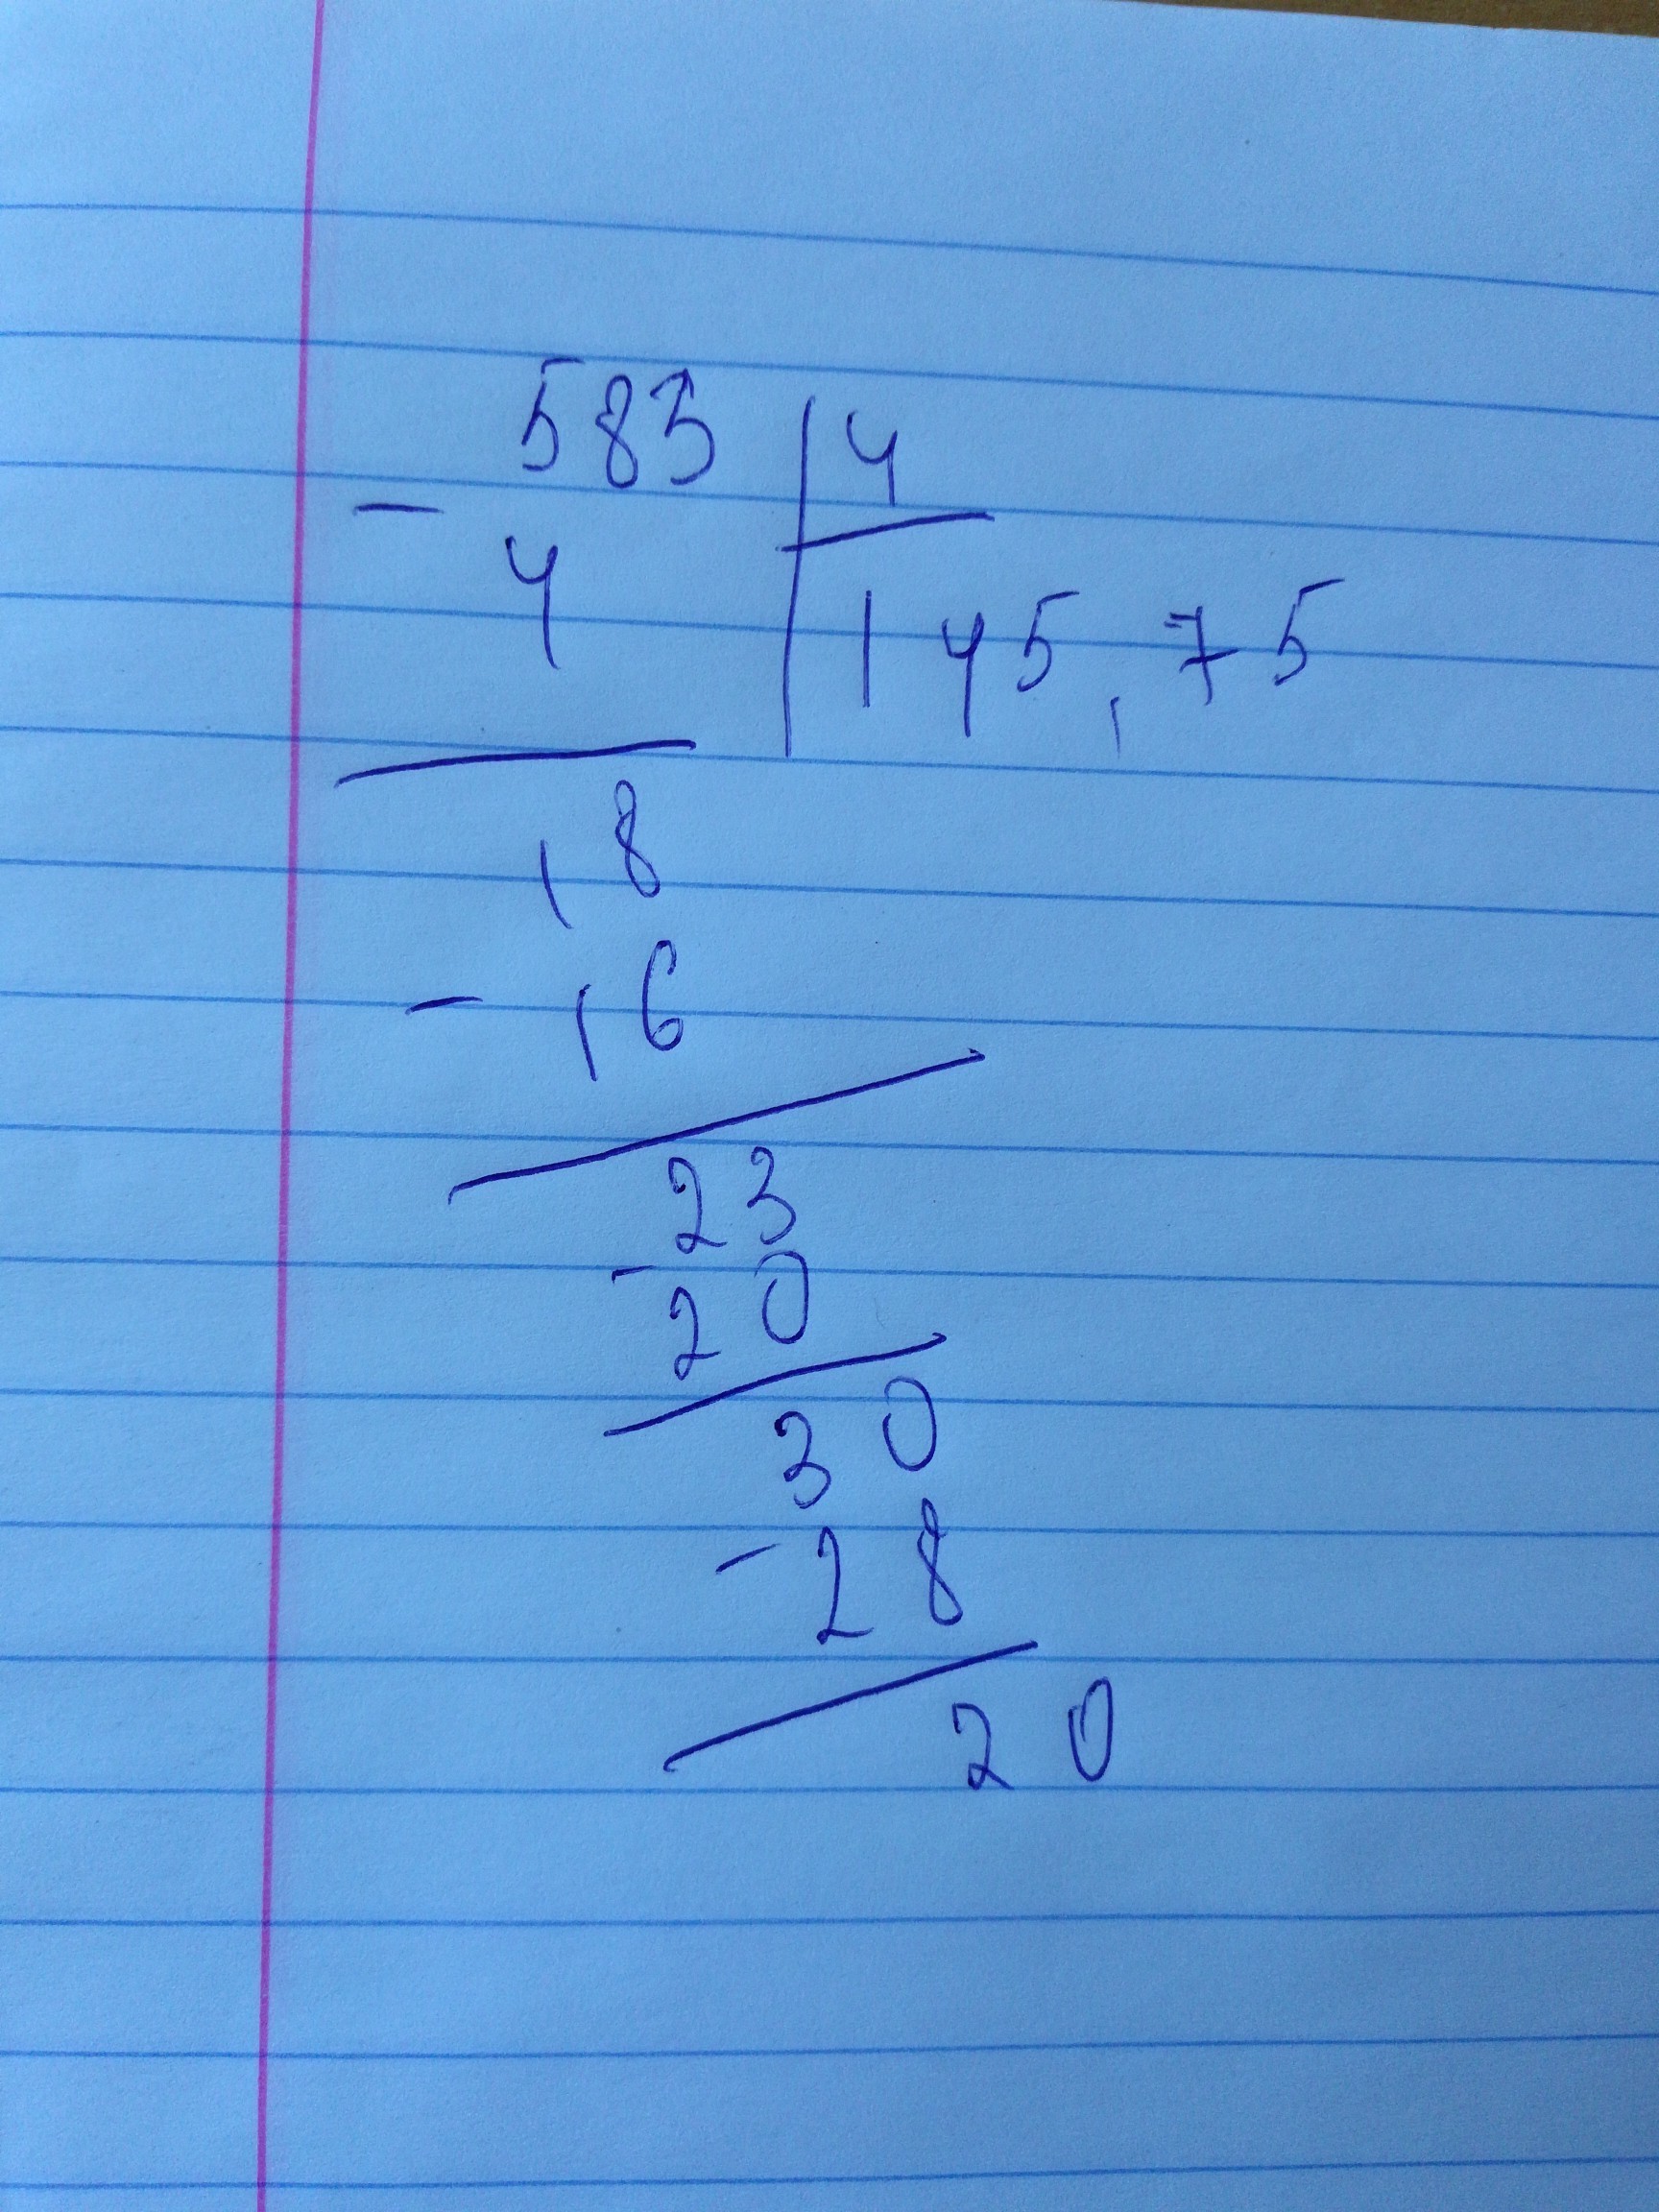 583 4
- 4
145,75
18
- 16
23
- 20
30
- 28
20